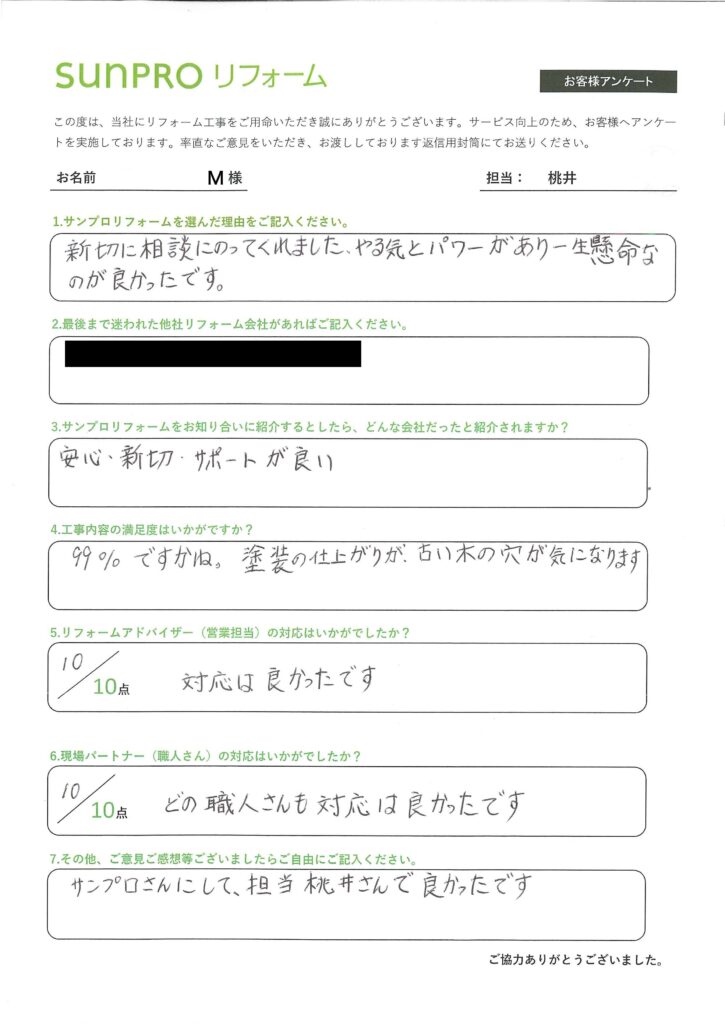 SUNPRO リフォーム
お客様アンケート
この度は、当社にリフォーム工事をご用命いただき誠にありがとうございます。サービス向上のため、お客様へアンケー
トを実施しております。率直なご意見をいただき、お渡ししております返信用封筒にてお送りください。
お名前 M 様 担当： 桃井
1.サンプロリフォームを選んだ理由をご記入ください。
新切に相談にのってくれました、やる気とパワーがあり一生懸命な
のが良かったです。
2.最後まで迷われた他社リフォーム会社があればご記入ください。
3.サンプロリフォームをお知り合いに紹介するとしたら、どんな会社だったと紹介されますか？
安心・新切・サポートが良い
4.工事内容の満足度はいかがですか？
99％ですかね。塗装の仕上がりが、古い木の穴が気になります
5.リフォームアドバイザー（営業担当）の対応はいかがでしたか？
10/10点 対応は良かったです
6.現場パートナー（職人さん）の対応はいかがでしたか？
10/10点 どの職人さんも対応は良かったです
7.その他、ご意見ご感想等ございましたらご自由にご記入ください。
サンプロさんにして、担当桃井さんで良かったです
ご協力ありがとうございました。